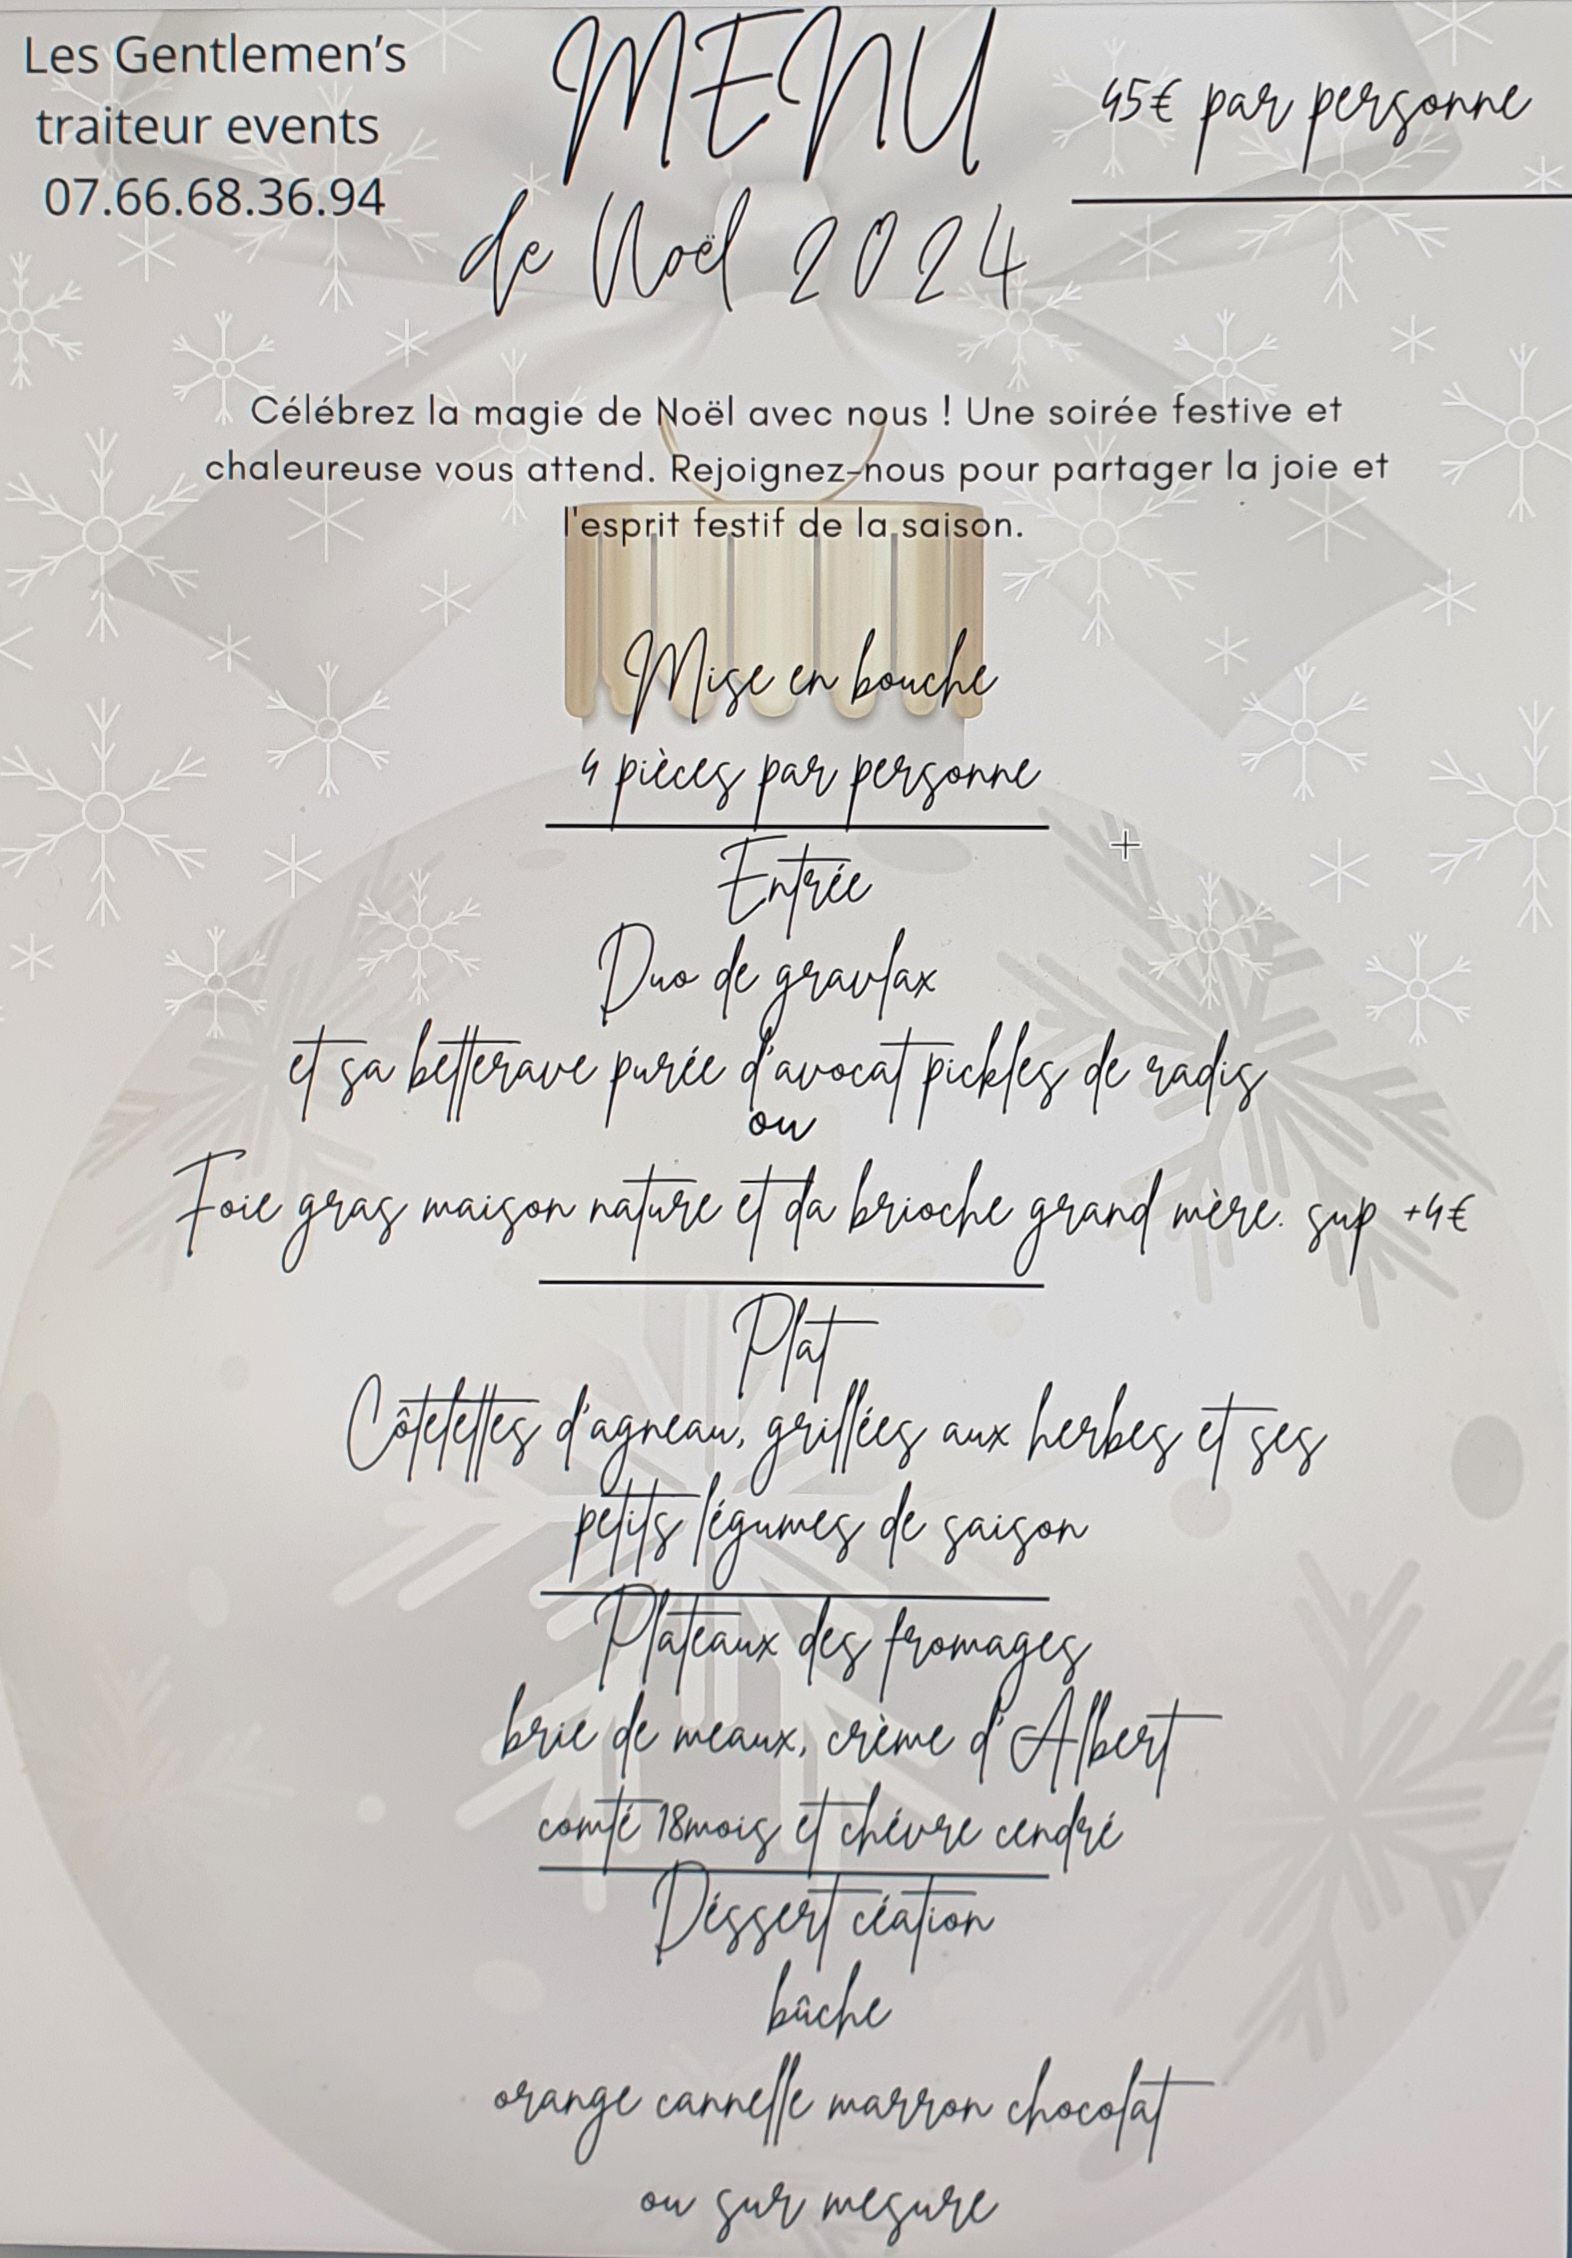 Les Gentlemen's
traiteur events
07.66.68.36.94
MENU
de Noël 2024
45€ par personne
Célébrez la magie de Noël avec nous ! Une soirée festive et
chaleureuse vous attend. Rejoignez-nous pour partager la joie et
l'esprit festif de la saison.
Mise en bouche
4 pièces par personne
Entrée
Duo de gravlax
et sa betterave purée d'avocat pickles de radis
ou
Foie gras maison nature et da brioche grand mère. sup +4€
Plat
Côtelettes d'agneau, grillées aux herbes et ses
petits légumes de saison
Plateaux des fromages
brie de meaux, crème d'Albert
comté 18mois et chévre cendré
Déssert céation
bûche
orange cannelle marron chocolat
ou sur mesure